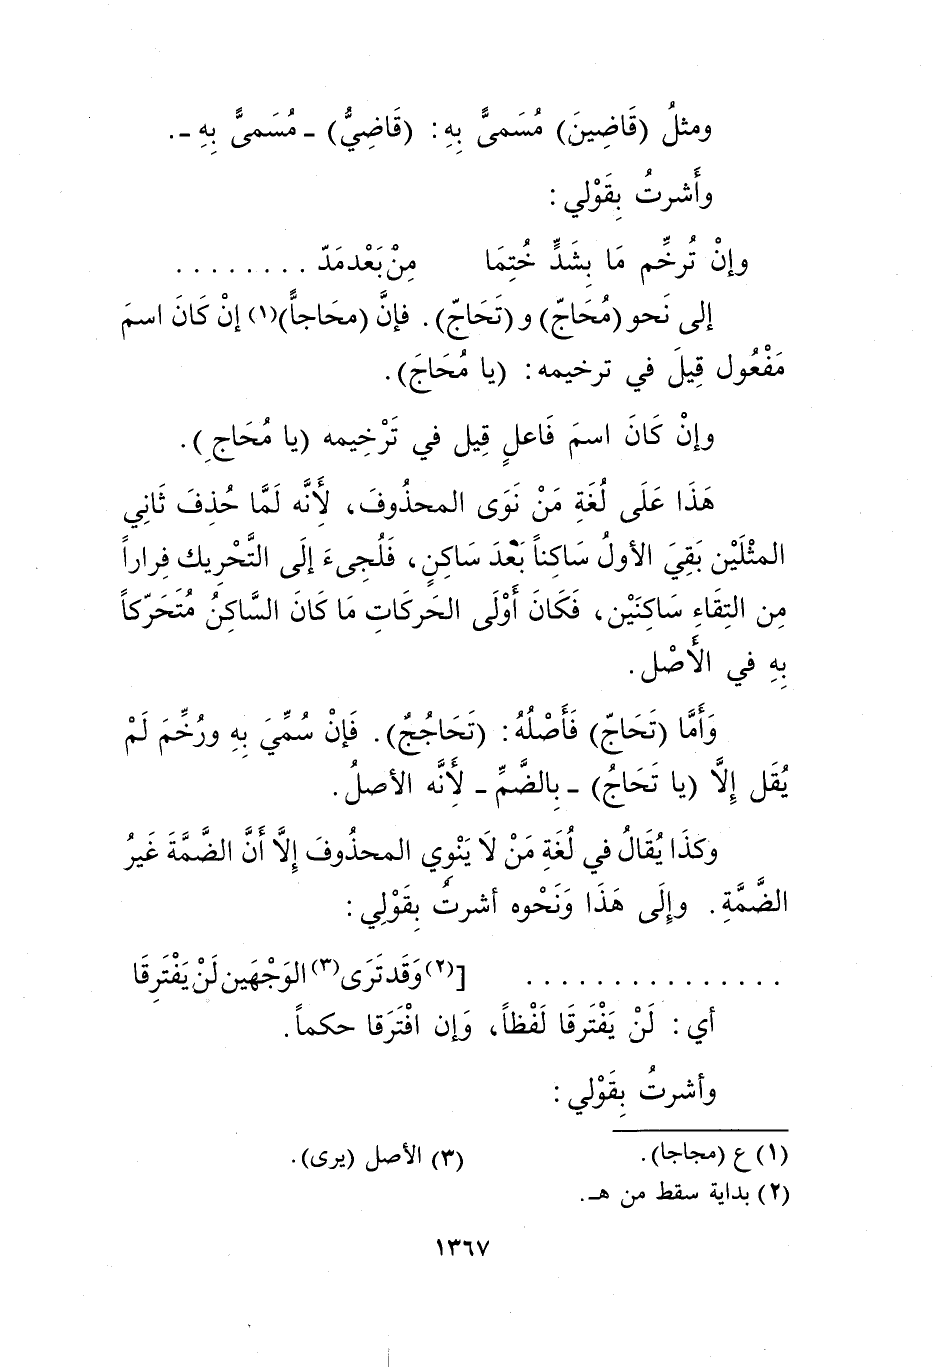 ومثلُ (قَاضِينَ) مُسَمىًّ بِهِ: (قَاضِيُّ) ـ مُسَمىًّ بِهِ ـ.
وأَشرتُ بِقَوْلي:
وإنْ تُرخِّم مَا بِشَدٍّ خُتِمَا مِنْ بَعْد مَدّ . . . . . . . .
إلى نَحو (مُحَاجّ) و (تَحَاجّ). فإنَّ (محَاجاًّ)(١) إنْ كَانَ اسمَ
مَفْعُول قِيلَ في ترخيمه: (يا مُحَاجَ).
وإنْ كَانَ اسمَ فَاعلٍ قِيل في تَرْخِيمه (يا مُحَاجِ).
هَذَا عَلَى لُغَةِ مَنْ نَوَى المحذُوفَ، لِأَنَّه لَمَّا حُذِفَ ثَانِي
المثْلَيْن بَقِيَ الأولُ سَاكِناً بَعْدَ سَاكِنٍ، فَلُجىءَ إلَى التَّحْرِيك فِراراً
مِن التِقَاءِ سَاكِنَيْن، فَكَانَ أَوْلَى الحَركَاتِ مَا كَانَ السَّاكِنُ مُتَحَرّكاً
بِهِ في الأَصْل.
وَأَمَّا (تَحَاجّ) فَأَصْلُهُ: (تَحَاجُجٌ). فَإنْ سُمِّيَ بِهِ ورُخِّمَ لَمْ
يُقَل إِلَّا (يا تَحَاجُ) ـ بِالضَّمِّ ـ لِأَنَّه الأصلُ.
وكَذَا يُقَالُ في لُغَةِ مَنْ لَا يَنْوِي المحذُوفَ إلَّا أَنَّ الضَّمَّةَ غَيرُ
الضَّمَّةِ. وإِلَى هَذَا وَنَحْوه أشرتُ بِقَوْلِي:
. . . . . . . . . . . . . . . [(٢) وَقَد تَرَى(٣) الوَجْهَين لَنْ يَفْتَرِقَا
أي: لَنْ يَفْتَرِقَا لَفْظاً، وَإِن افْتَرَقا حكماً.
وأشرتُ بِقَوْلي:
(١) ع (مجاجا).
(٣) الأصل (يرى).
(٢) بداية سقط من هـ.
١٣٦٧